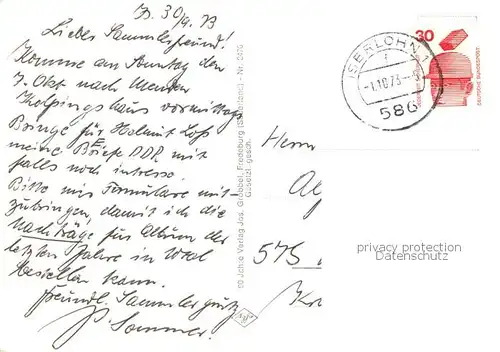 Js. 30/9. 73
Liebes Sammlerfreund!
Komme am Sonntag den
7. Okt nach Menden
Kolpingshaus vormittags
Bringe für Helmut Loss
meine Briefe DDR mit
falls noch intresse.
Bitte mir Formulare mit-
zubringen, damit ich die
Nachträge für Album der
letzten Jahre in Wal
bestellen kann.
Freundl. Sammlergruß
P. Sommer.
60 Jahre Verlag Jos. Grobbel, Fredeburg (Sauerland) - Nr.
Gesetzl. gesch.
30
DEUTSCHE BUNDESPOST
ISERLOHN 1
-1.10.73-
586
Herrn
575
privacy protection
Datenschutz